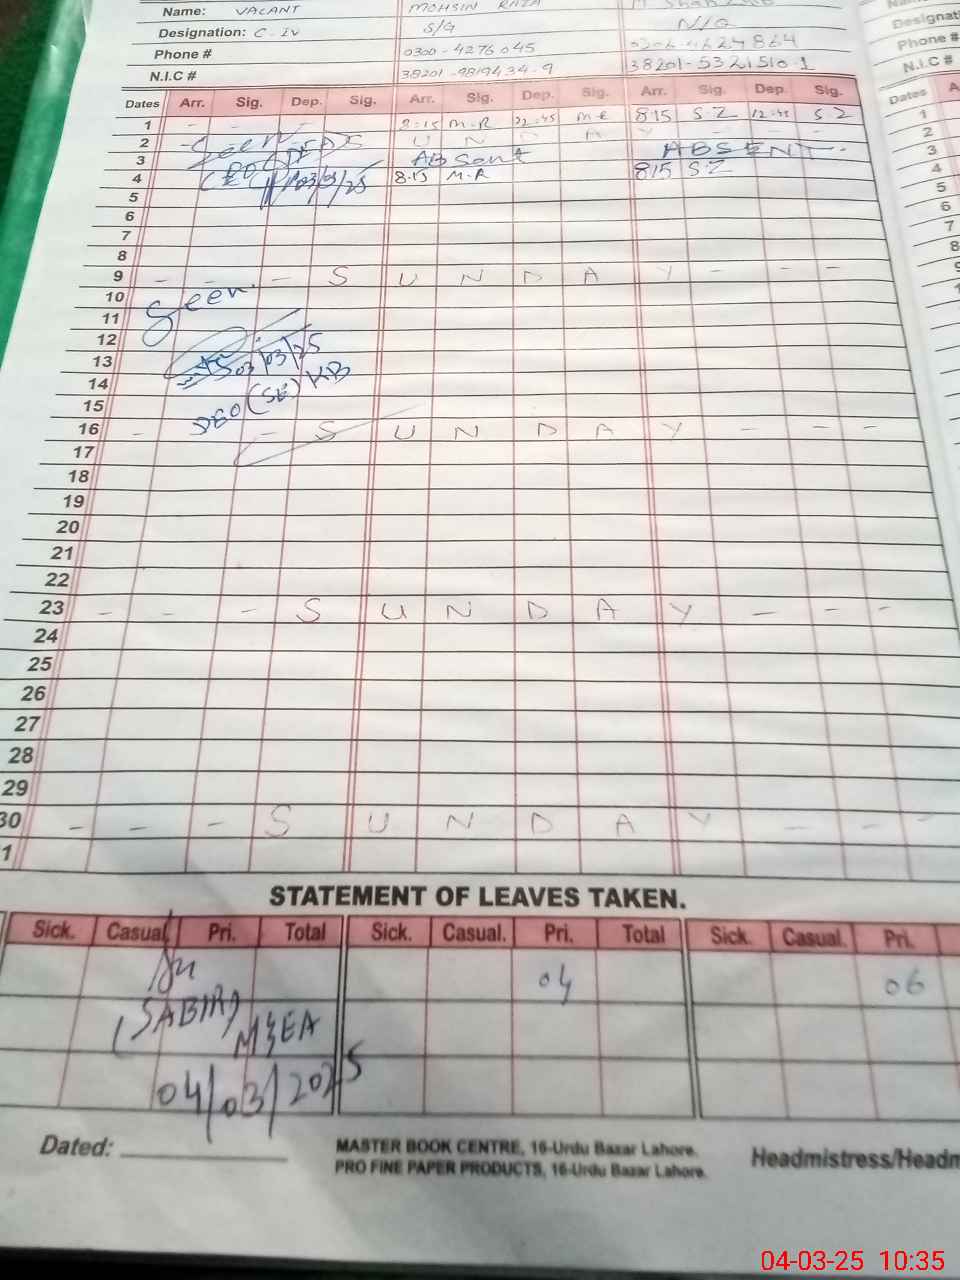 Name: VACANT MOHSIN RAZA
Designation: C-IV S/G N/Q Designati
Phone # 0300-4276045 0306-4624864 Phone #
N.I.C # 38201-9819434-9 38201-5321510-1 N.I.C #
Dates Arr. Sig. Dep. Sig. Arr. Sig. Dep. Sig. Arr. Sig. Dep. Sig. Dates A
1 - - - 8:15 M-R 12:45 M-R 815 S-Z 12:45 S-Z 1
2 - Seen S U N D A Y - - - 2
3 Absent ABSENT- 3
4 03/03/25 8:15 M-R 815 S-Z 4
5 5
6 6
7 7
8 8
9 - - - S U N D A Y - - -
10 Seen.
11
12
13 03/03/25
14 DEO (SE) KB
15
16 - - S U N D A Y - - -
17
18
19
20
21
22
23 - - - S U N D A Y - - -
24
25
26
27
28
29
30 - - - S U N D A Y - - -
1
STATEMENT OF LEAVES TAKEN.
Sick. Casual. Pri. Total Sick. Casual. Pri. Total Sick. Casual. Pri.
04 06
(SABIR)
M&EA
04/03/2025
Dated:
MASTER BOOK CENTRE, 16-Urdu Bazar Lahore.
PRO FINE PAPER PRODUCTS, 16-Urdu Bazar Lahore.
Headmistress/Headm
04-03-25 10:35